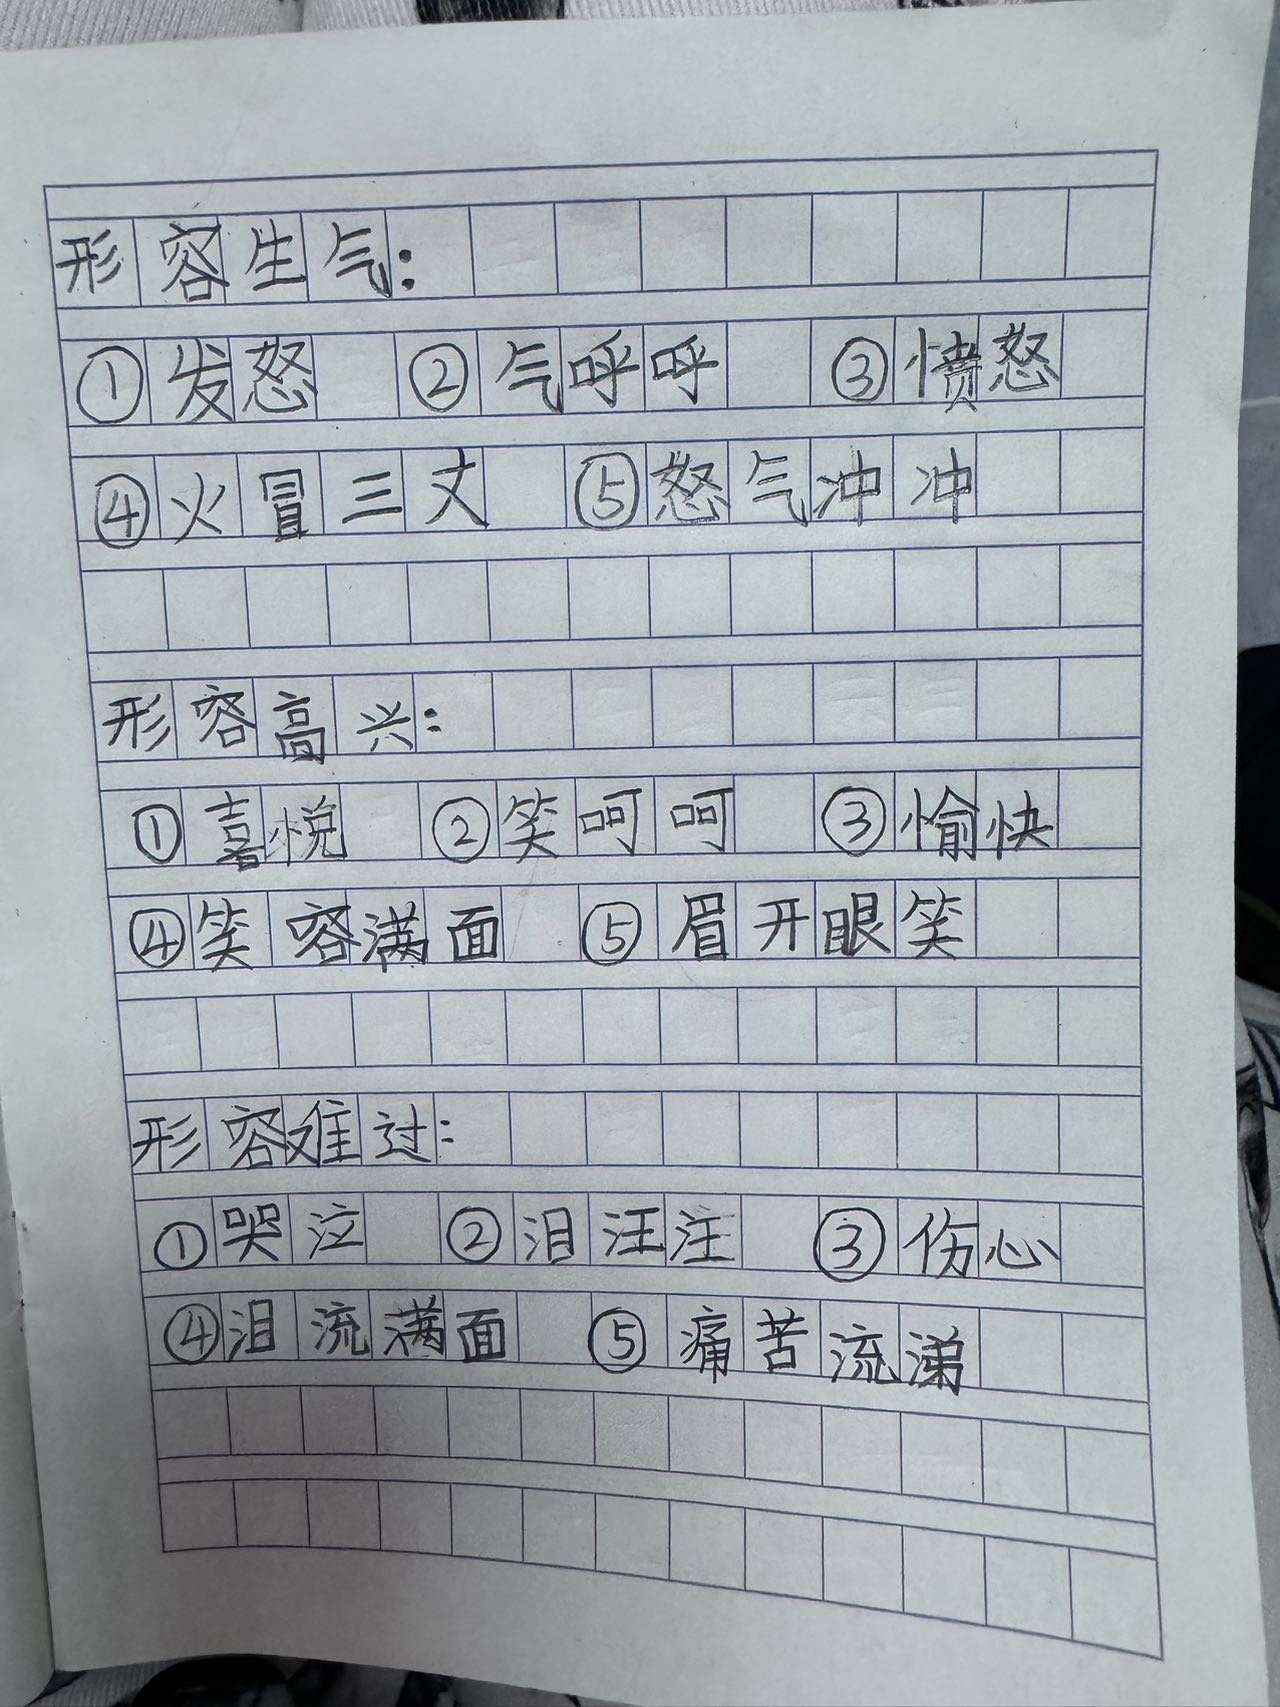 形容生气：
①发怒 ②气呼呼 ③愤怒
④火冒三丈 ⑤怒气冲冲
形容高兴：
①喜悦 ②笑呵呵 ③愉快
④笑容满面 ⑤眉开眼笑
形容难过：
①哭泣 ②泪汪汪 ③伤心
④泪流满面 ⑤痛苦流涕